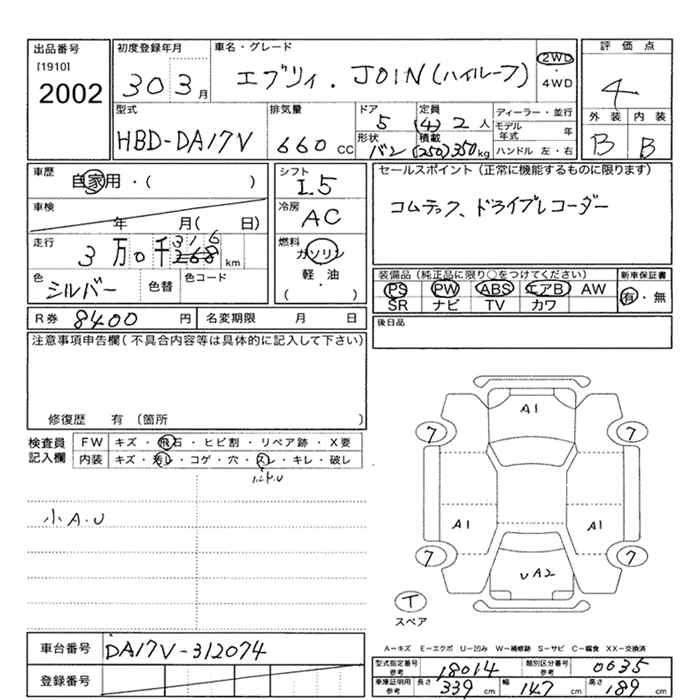 出品番号
[1910]
2002
初度登録年月
30 3月
車名・グレード
エブリィ. JOIN(ハイルーフ)
2WD
・
4WD
評価点
4
外装 内装
B B
型式
HBD-DA17V
排気量
660 CC
ドア
5
定員
(4) 2 人
形状
バン
積載
(250)350kg
ディーラー・並行
モデル年式 年
ハンドル 左・右
車歴
自家用・( )
シフト
I.5
セールスポイント(正常に機能するものに限ります)
コムテック、ドライブレコーダー
車検
年 月( 日)
冷房
AC
走行
3万0千316 268 km
燃料
ガソリン
軽・油
・
( )
色
シルバー
色替
色コード
装備品(純正品に限り○をつけてください)
新車保証書
PS PW ABS エアB AW
有・無
SR ナビ TV カワ
R券 8400 円
名変期限 月 日
後日品
注意事項申告欄(不具合内容等は具体的に記入して下さい)
修復歴 有 〔箇所 〕
検査員
記入欄
FW キズ・飛石・ヒビ割・リペア跡・X要
内装 キズ・汚レ・コゲ・穴・スレ・キレ・破レ
小A.U
A1
7 7
A1 A1
7 7
UA2
T
スペア
車台番号 DA17V-312074
登録番号
A−キズ E−エクボ U−凹み W−補修跡 S−サビ C−腐食 XX−交換済
型式指定番号
参考
18014
類別区分番号
参考
0635
車庫証明用
参考
長さ 339 cm 幅 147 cm 高さ 189 cm